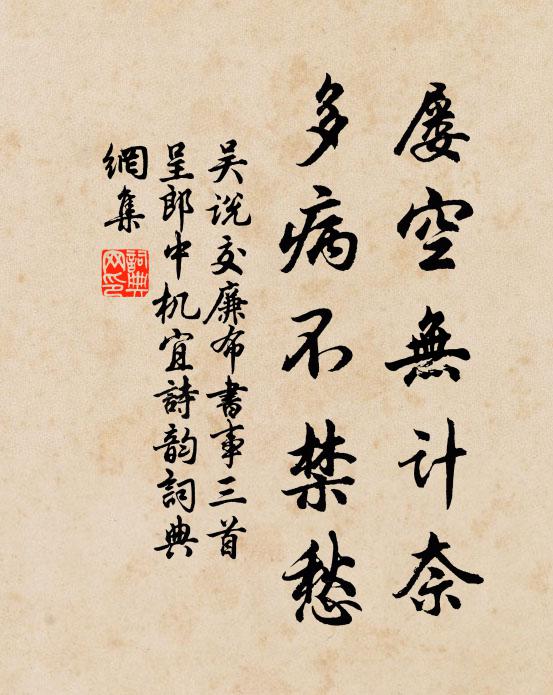 屡空無计奈
多病不禁愁
吴说交廉布書事三首
呈郎中机宜詩韵詞典
網集
詞典網印